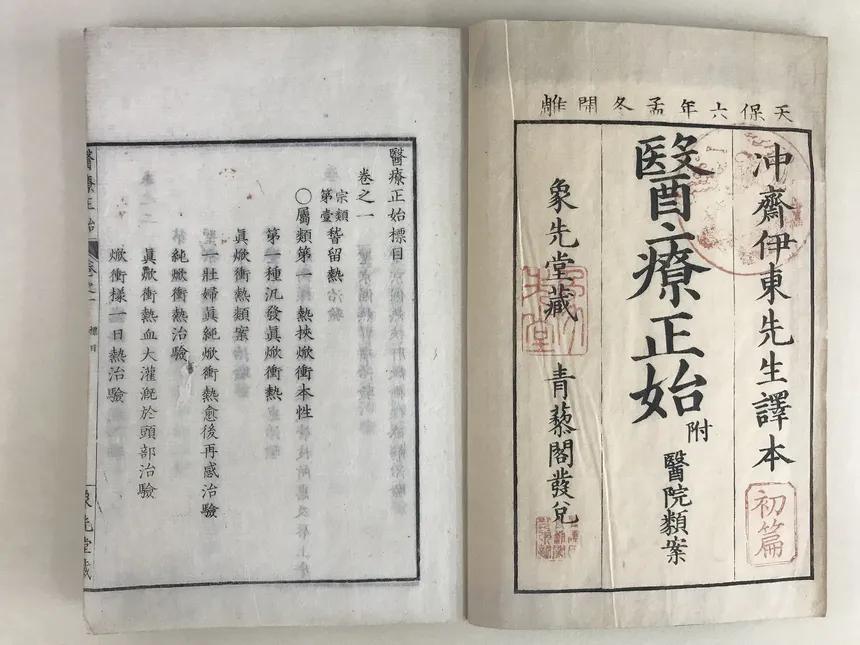 天保六年孟冬開雕
冲齋伊東先生譯本
初篇
醫療正始
附
醫院類案
象先堂藏
青藜閣發兌
醫療正始標目
卷之一
宗類第壹 稽留熱
○屬類第一 熱挾焮衝本性
第一種汎發眞焮衝熱
眞焮衝熱類案
一壯婦眞純焮衝熱愈後再感治驗
純焮衝熱治驗
眞焮衝熱血大灌漑於頭部治驗
焮衝樣一日熱治驗
醫療正始
卷之一
標目
象先堂藏